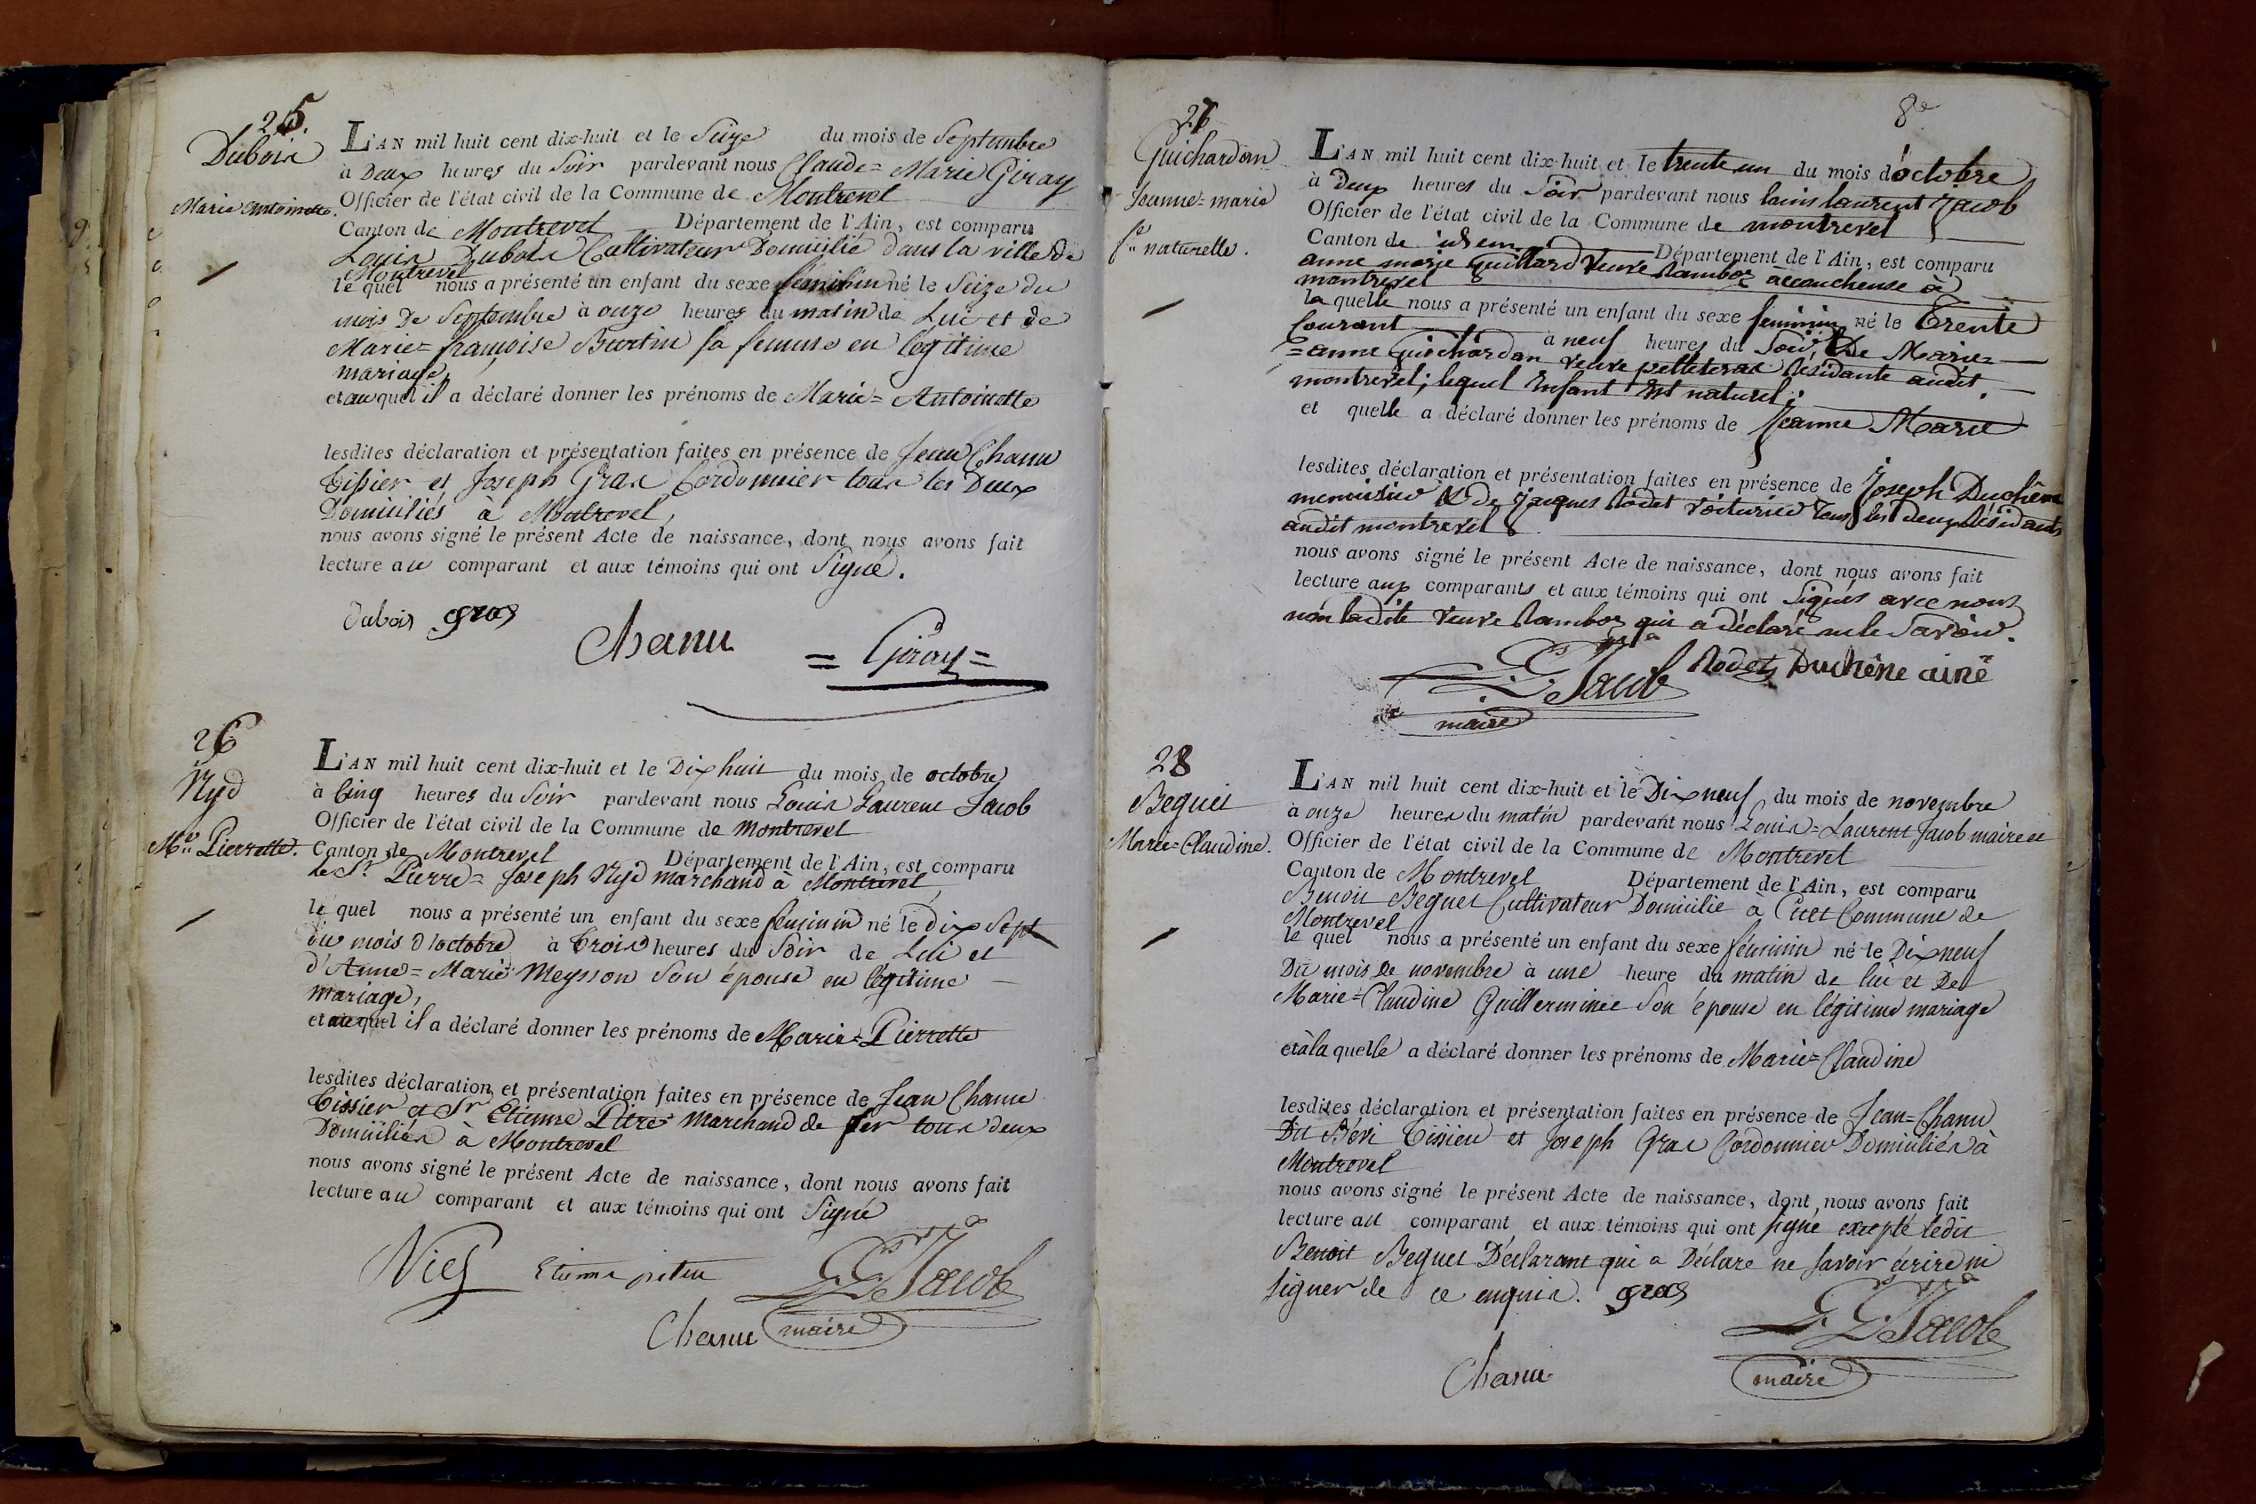 25.
Dubois
Marie Antoinette.
L'AN mil huit cent dix-huit et le Seize du mois de Septembre
à Deux heures du Soir pardevant nous Claude=Marie Giray
Officier de l'état civil de la Commune de Montrevel
Canton de Montrevel Département de l'Ain, est comparu
Louis Dubois Cultivateur Domicilié dans la ville de
Montrevel
le quel nous a présenté un enfant du sexe féminin né le Seize du
mois De Septembre à onze heures du matin de Lui et de
Marie=françoise Burtin sa femme en légitime
mariage,
et auquel il a déclaré donner les prénoms de Marie=Antoinette
lesdites déclaration et présentation faites en présence de Jean Chanu
Tissier et Joseph Gras Cordonnier tous les Deux
Domiciliés à Montrevel,
nous avons signé le présent Acte de naissance, dont nous avons fait
lecture au comparant et aux témoins qui ont Signé.
Dubois gros
Chanu = Giray =
26
Nyd
Mie Pierrette.
L'AN mil huit cent dix-huit et le Dix huit du mois de octobre
à Cinq heures du Soir pardevant nous Louis Laurent Jacob
Officier de l'état civil de la Commune de Montrevel
Canton de Montrevel Département de l'Ain, est comparu
le Sr. Pierre=Joseph Nyd marchand à Montrevel
le quel nous a présenté un enfant du sexe feminin né le dix Sept
du mois d'octobre à Trois heures du Soir de Lui et
d'Anne=Marie Meysson Son épouse en légitime
mariage,
et auquel il a déclaré donner les prénoms de Marie=Pierrette
lesdites déclaration et présentation faites en présence de Jean Chanu
Tissier et Sr Etienne Pitre Marchand de fer tous deux
Domiciliés à Montrevel
nous avons signé le présent Acte de naissance, dont nous avons fait
lecture au comparant et aux témoins qui ont Signé
Nied Etienne pitre Jacob
Chanu maire
8e
27
Guichardon
Jeanne=marie
fe naturelle.
L'AN mil huit cent dix-huit et le trente un du mois d'octobre
à Deux heures du Soir pardevant nous louis laurent Jacob
Officier de l'état civil de la Commune de montrevel
Canton de idem Département de l'Ain, est comparu
anne marie Guillard Veuve Ramboz accoucheuse à
montrevel
la quelle nous a présenté un enfant du sexe feminin né le Trente
Courant à neuf heures du Soir De Marie=
=anne Guichardon veuve pelleteras Résidante audit
montrevel; lequel Enfant Est naturel;
et quelle a déclaré donner les prénoms de Jeanne Marie
lesdites déclaration et présentation faites en présence de Joseph Duchêne
menuisier & De Jacques Rodet voiturier Tous les deux Résidants
audit montrevel
nous avons signé le présent Acte de naissance, dont nous avons fait
lecture aux comparants et aux témoins qui ont Signés avec nous
non ladite veuve Ramboz qui a déclaré ne le Savoir.
Jacob Rodet Duchêne ainé
maire
28
Beguet
Marie=Claudine.
L'AN mil huit cent dix-huit et le Dix neuf du mois de novembre
à onze heures du matin pardevant nous Louis=Laurent Jacob maire et
Officier de l'état civil de la Commune de Montrevel
Canton de Montrevel Département de l'Ain, est comparu
Benoit Beguet Cultivateur Domicilié à Cuet Commune de
Montrevel
le quel nous a présenté un enfant du sexe féminin né le Dix neuf
Du mois de novembre à une heure du matin de lui et De
Marie=Claudine Guillerminet Son épouse en légitime mariage
et à la quelle a déclaré donner les prénoms de Marie=Claudine
lesdites déclaration et présentation faites en présence de Jean=Chanu
Dit Béri Tissier et Joseph Gras Cordonnier Domiciliés à
Montrevel
nous avons signé le présent Acte de naissance, dont nous avons fait
lecture au comparant et aux témoins qui ont signé excepté ledit
Benoit Beguet Déclarant qui a Déclaré ne savoir écrire ni
signer de ce enquis. gros
Jacob
Chanu maire